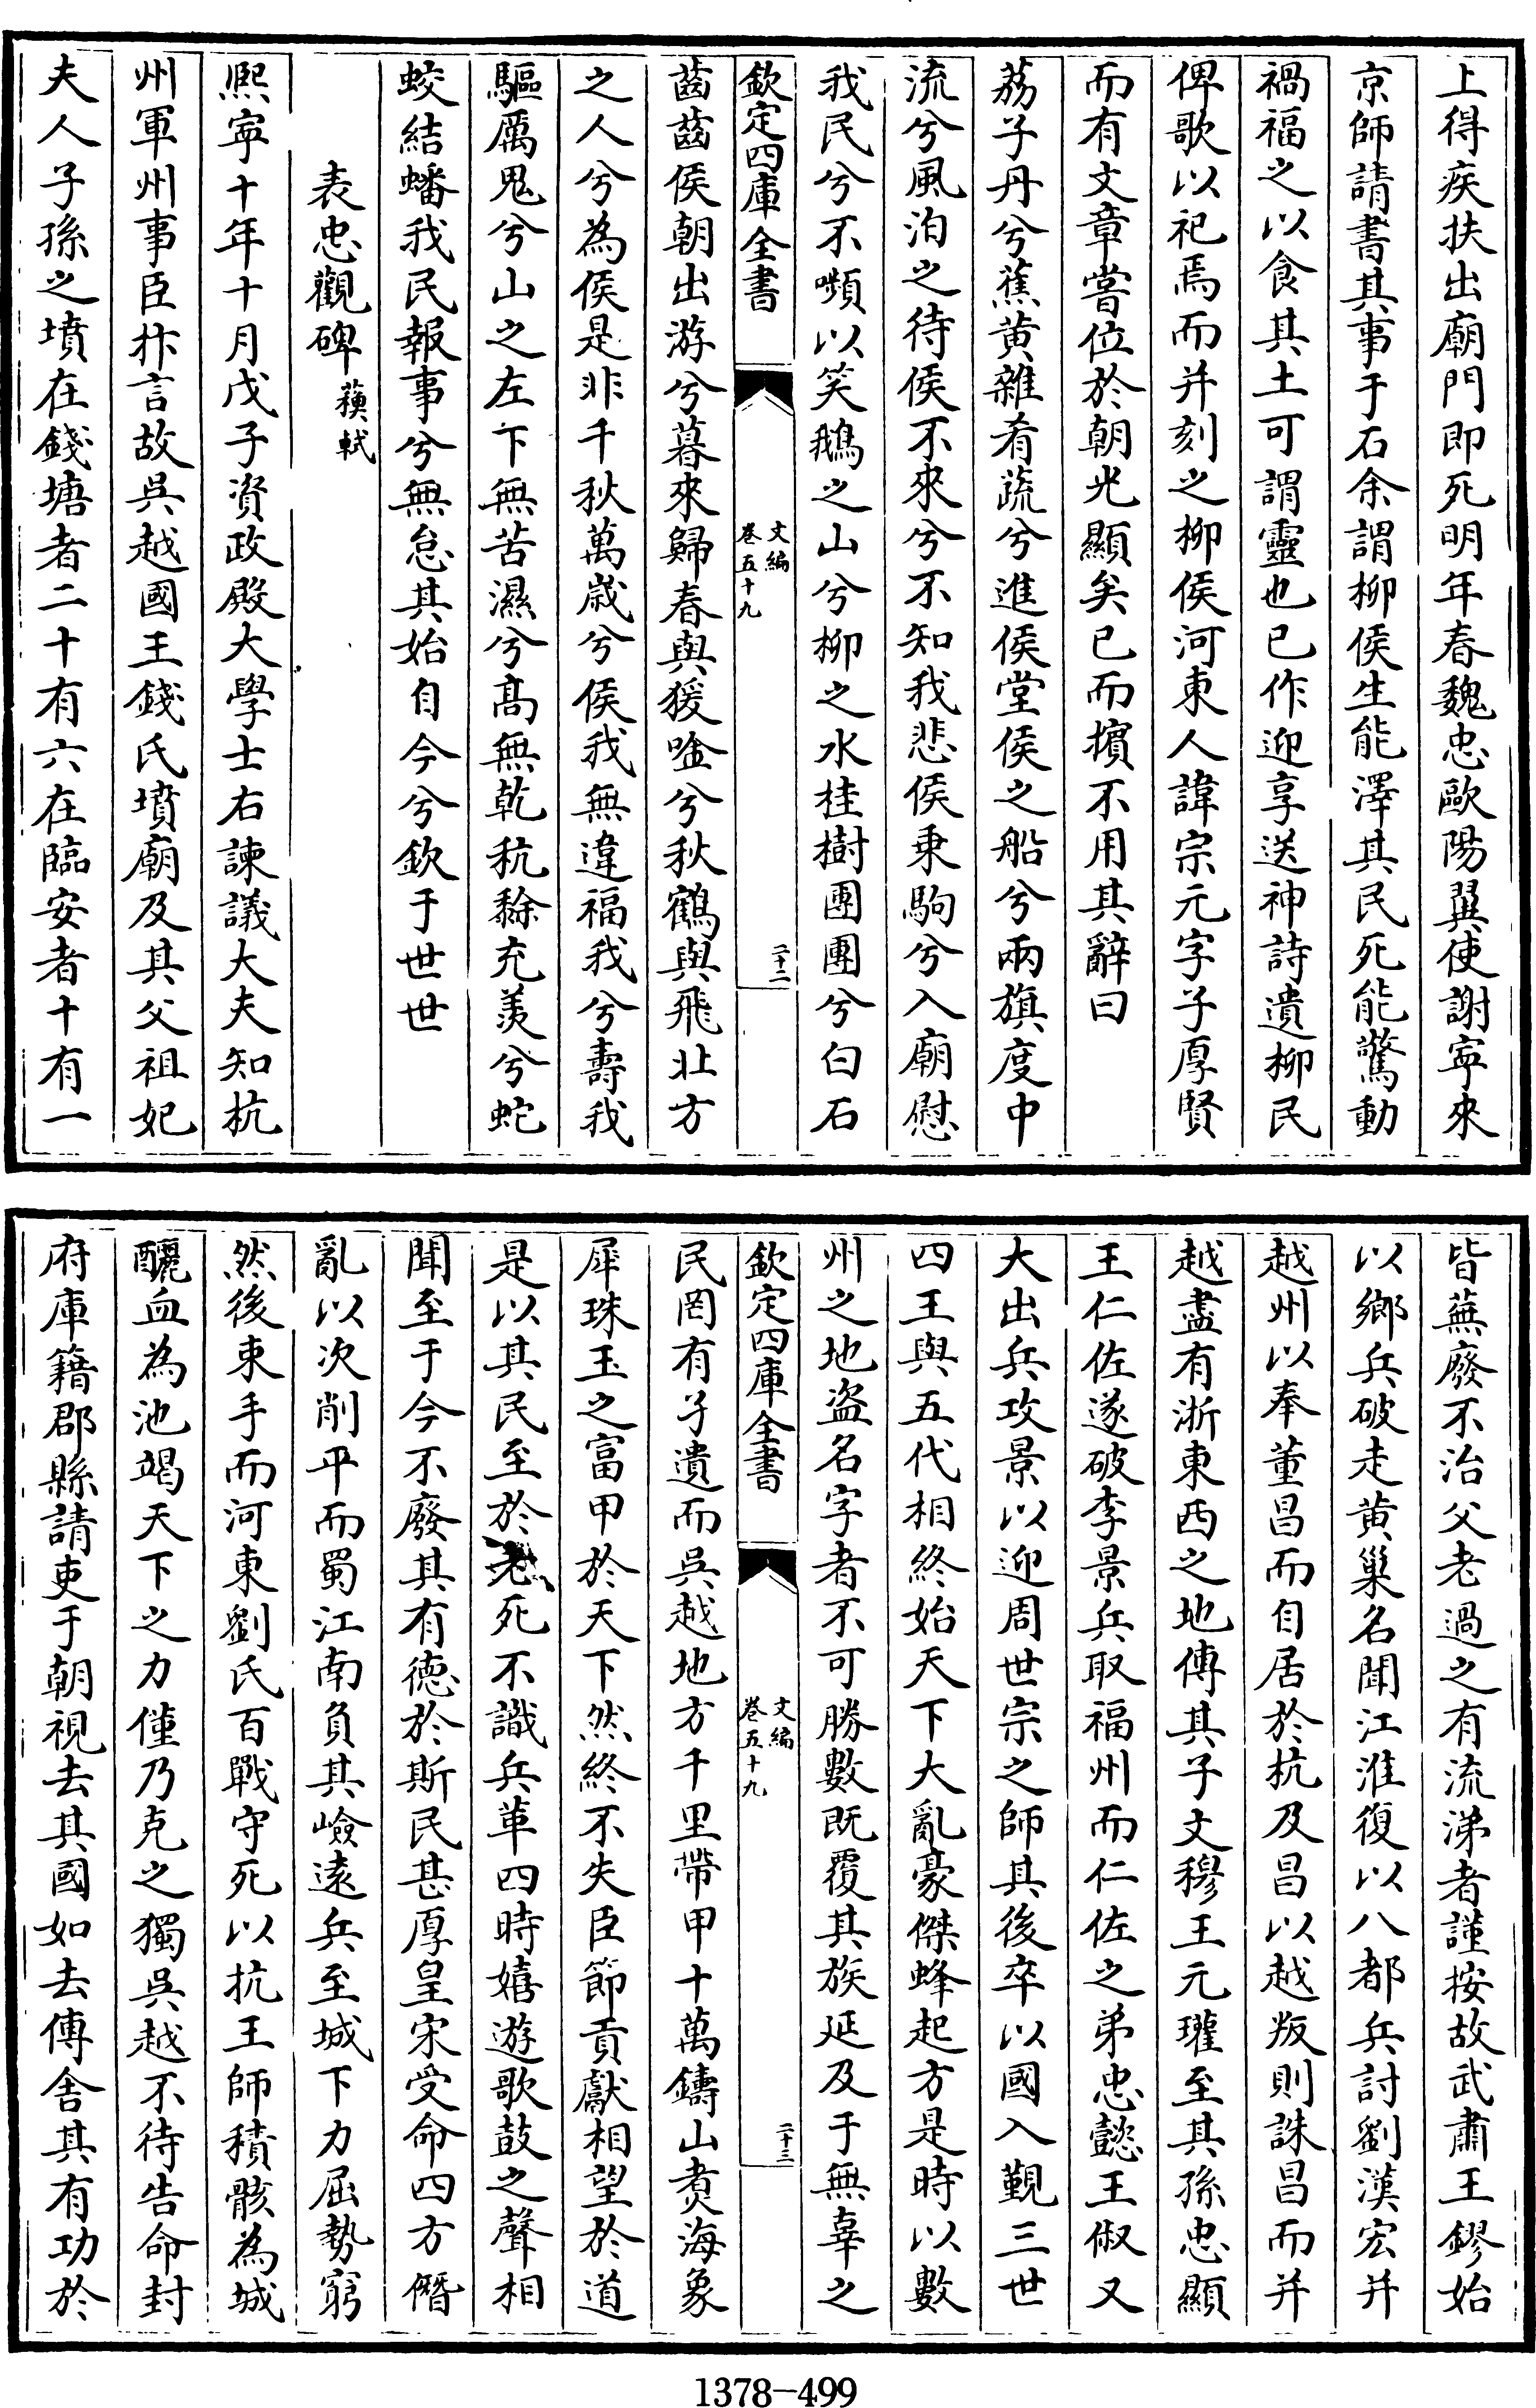 上得疾扶出廟門即死明年春魏忠歐陽翼使謝寧來
京師請書其事于石余謂柳侯生能澤其民死能驚動
禍福之以食其土可謂靈也已作迎享送神詩遺柳民
俾歌以祀焉而并刻之柳侯河東人諱宗元字子厚賢
而有文章嘗位於朝光顯矣已而擯不用其辭曰
荔子丹兮蕉黄雜肴蔬兮進侯堂侯之船兮兩旗度中
流兮風泊之待侯不來兮不知我悲侯乗駒兮入廟慰
我民兮不嚬以笑鵝之山兮柳之水桂樹團團兮白石
欽定四庫全書
文編
卷五十九
二十二
齒齒侯朝出游兮暮來歸春與猨唫兮秋鶴與飛北方
之人兮為侯是非千秋萬歳兮侯我無違福我兮壽我
驅厲鬼兮山之左下無苦濕兮髙無乾秔稌充羨兮蛇
蛟結蟠我民報事兮無怠其始自今兮欽于世世
表忠觀碑 蘓軾
熈寧十年十月戊子資政殿大學士右諫議大夫知杭
州軍州事臣抃言故吳越國王錢氏墳廟及其父祖妃
夫人子孫之墳在錢塘者二十有六在臨安者十有一
皆蕪廢不治父老過之有流涕者謹按故武肅王鏐始
以鄉兵破走黄巢名聞江淮復以八都兵討劉漢宏并
越州以奉董昌而自居於杭及昌以越叛則誅昌而并
越盡有浙東西之地傳其子文穆王元瓘至其孫忠顯
王仁佐遂破李景兵取福州而仁佐之弟忠懿王俶又
大出兵攻景以迎周世宗之師其後卒以國入覲三世
四王與五代相終始天下大亂豪傑蜂起方是時以數
州之地盜名字者不可勝數既覆其族延及于無辜之
欽定四庫全書
文編
卷五十九
二十三
民罔有孑遺而吳越地方千里帶甲十萬鑄山煑海象
犀珠玉之富甲於天下然終不失臣節貢獻相望於道
是以其民至於老死不識兵革四時嬉遊歌鼓之聲相
聞至于今不廢其有德於斯民甚厚皇宋受命四方僭
亂以次削平而蜀江南負其嶮遠兵至城下力屈勢窮
然後束手而河東劉氏百戰守死以抗王師積骸為城
釃血為池竭天下之力僅乃克之獨吳越不待告命封
府庫籍郡縣請吏于朝視去其國如去傳舎其有功於
1378-499